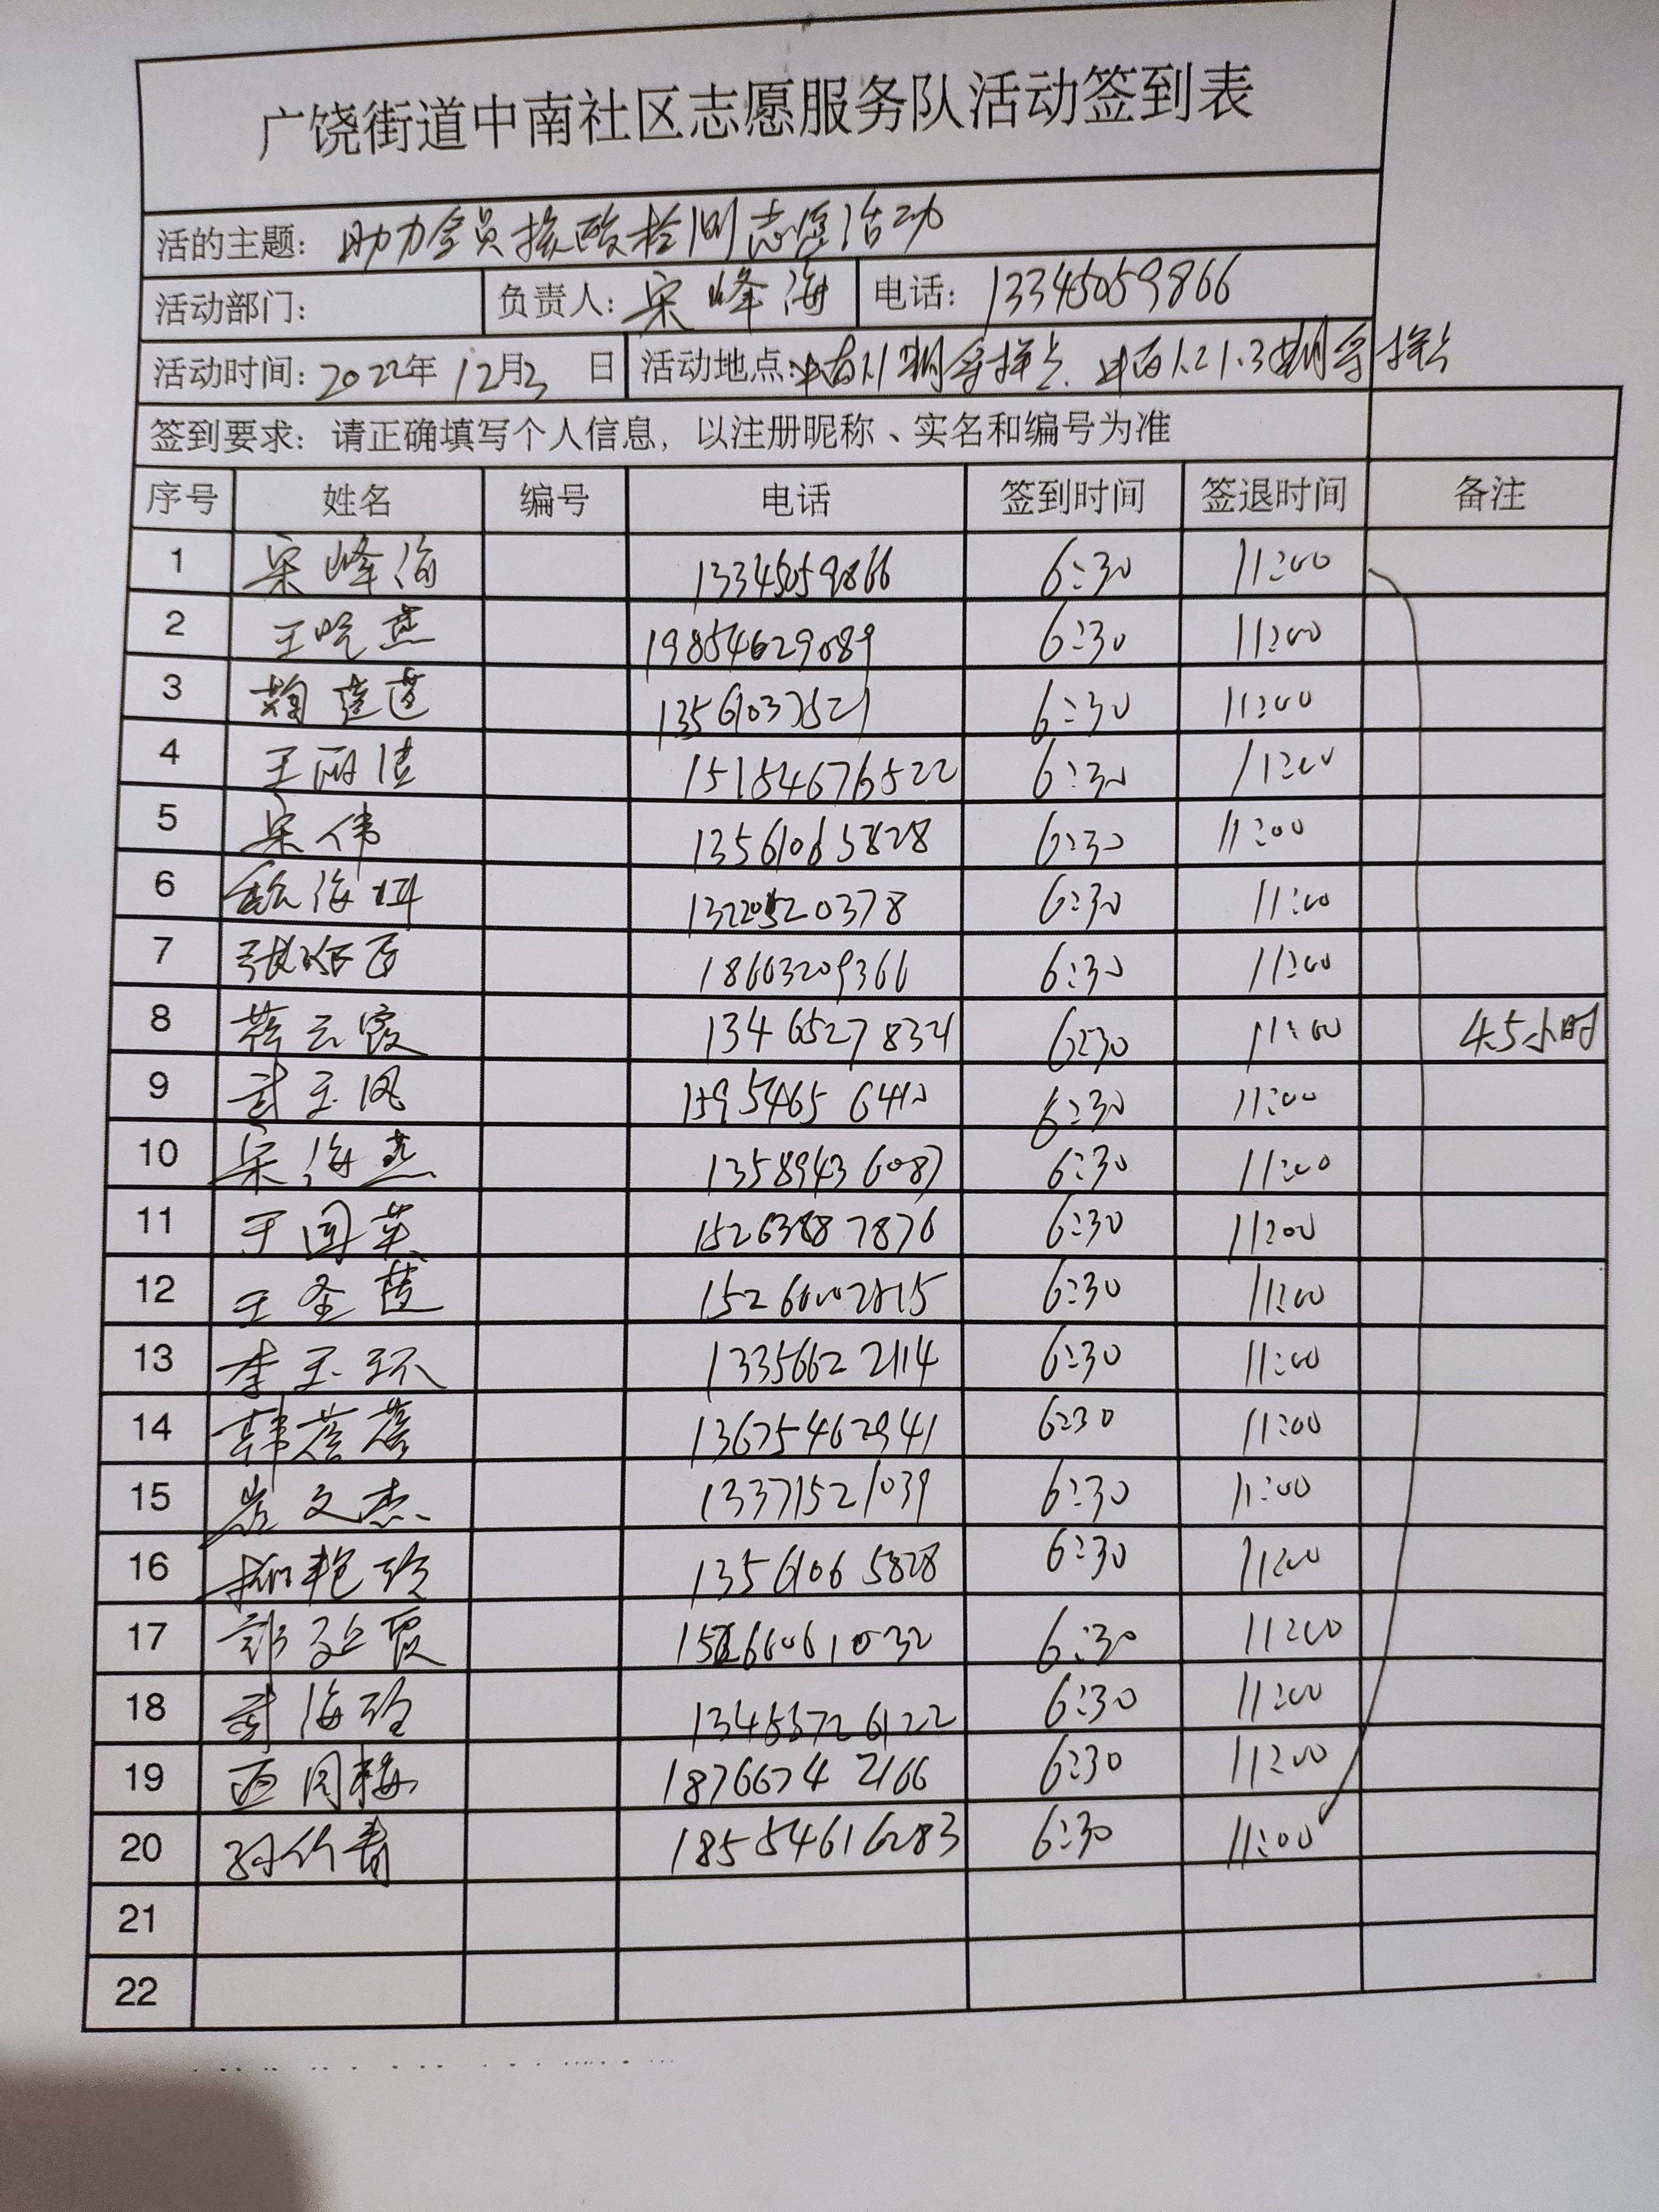 广饶街道中南社区志愿服务队活动签到表
活的主题：助力全员核酸检测志愿活动
活动部门： 负责人：宋峰海 电话：13345059866
活动时间：2022年12月3日 活动地点：
签到要求：请正确填写个人信息，以注册昵称、实名和编号为准
序号 姓名 编号 电话 签到时间 签退时间 备注
1 宋峰海 13345059866 6:30 11:00
2 19854629089 6:30 11:00
3 6:30 11:00
4 王丽洁 15154676522 6:30 11:00
5 宋伟 13561065828 6:30 11:00
6 6:30 11:00
7 18663209366 6:30 11:00
8 蒋云霞 6:30 11:00 4.5小时
9 武玉凤 6:30 11:00
10 宋海燕 13589436087 6:30 11:00
11 于国英 15263887876 6:30 11:00
12 王圣莲 6:30 11:00
13 李玉环 13356622114 6:30 11:00
14 韩蓓蓓 13675462941 6:30 11:00
15 岩文杰 13371521039 6:30 11:00
16 柳艳玲 13561065828 6:30 11:00
17 6:30 11:00
18 6:30 11:00
19 18766742166 6:30 11:00
20 孙竹青 18554616283 6:30 11:00
21
22